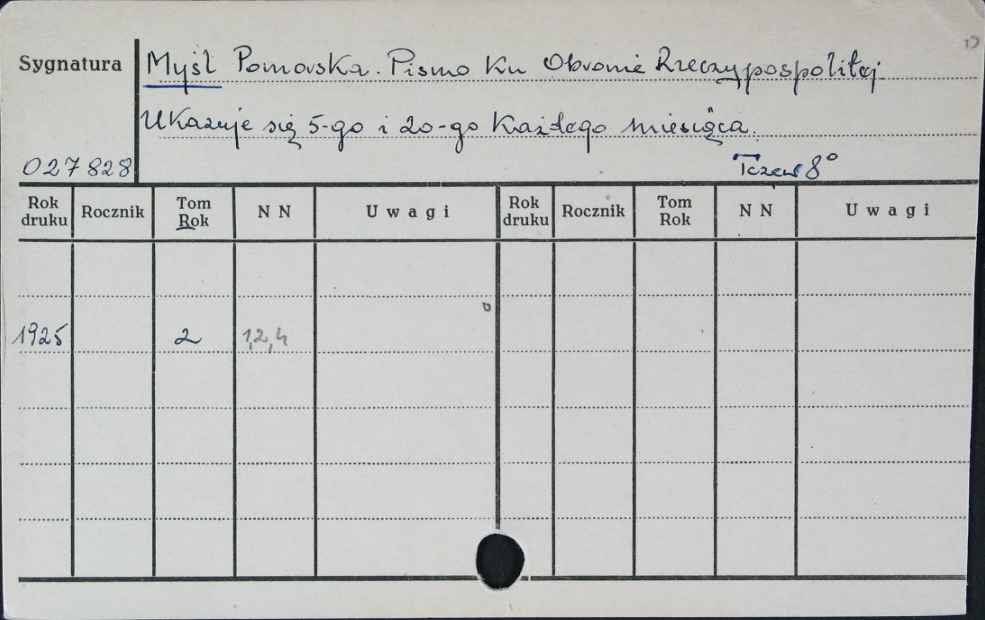 Sygnatura Myśl Pomorska. Pismo Ku Obronie Rzeczypospolitej.
Ukazuje się 5-go i 20-go Każdego miesiąca.
027828 Tczew 8°
Rok druku Rocznik Tom Rok N N Uwagi Rok druku Rocznik Tom Rok N N Uwagi
1925 2 1,2,4